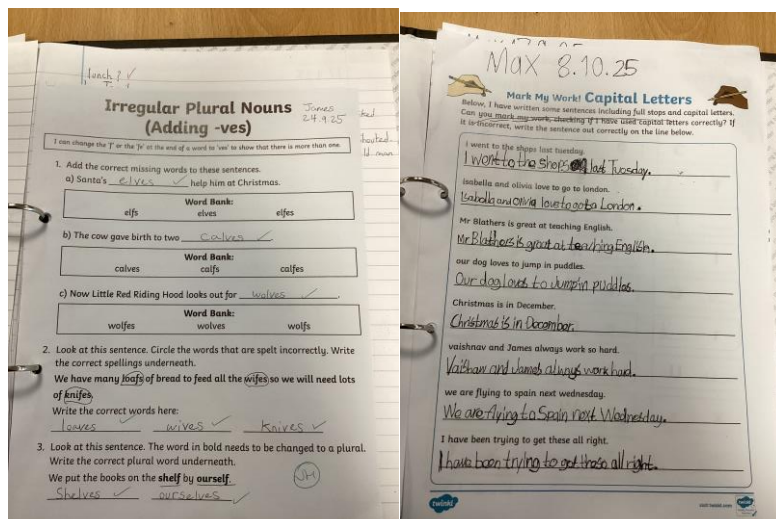 lunch ? ✓
Irregular Plural Nouns
(Adding -ves)
James
24.9.25
I can change the 'f' or the 'fe' at the end of a word to 'ves' to show that there is more than one.
1. Add the correct missing words to these sentences.
a) Santa's elves ✓ help him at Christmas.
Word Bank:
elfs elves elfes
b) The cow gave birth to two calves ✓.
Word Bank:
calves calfs calfes
c) Now Little Red Riding Hood looks out for wolves ✓.
Word Bank:
wolfes wolves wolfs
2. Look at this sentence. Circle the words that are spelt incorrectly. Write
the correct spellings underneath.
We have many loafs of bread to feed all the wifes so we will need lots
of knifes.
Write the correct words here:
loaves ✓ wives ✓ knives ✓
3. Look at this sentence. The word in bold needs to be changed to a plural.
Write the correct plural word underneath.
We put the books on the shelf by ourself.
Shelves ✓ ourselves ✓
Max 8.10.25
Mark My Work! Capital Letters
Below, I have written some sentences including full stops and capital letters.
Can you mark my work, checking if I have used capital letters correctly? If
it is incorrect, write the sentence out correctly on the line below.
i went to the shops last tuesday.
I went to the shops last Tuesday.
isabella and olivia love to go to london.
Isabella and Olivia love to go to a London.
Mr Blathers is great at teaching English.
Mr Blathers is great at teaching English.
our dog loves to jump in puddles.
Our dog loves to jump in puddles.
Christmas is in December.
Christmas is in December.
vaishnav and James always work so hard.
Vaishaw and James always work hard.
we are flying to spain next wednesday.
We are flying to Spain next Wednesday.
I have been trying to get these all right.
I have been trying to get these all right.
twinkl
visit twinkl.com